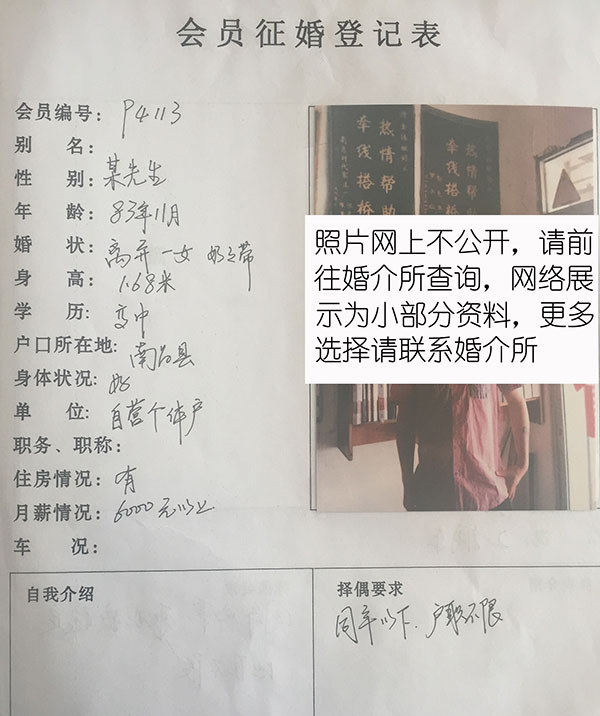 会员征婚登记表
会员编号: P4113
别 名:
性 别: 某先生
年 龄: 83年11月
婚 状: 离异 一女 奶奶带
身 高: 1.68米
学 历: 高中
户口所在地: 南昌县
身体状况: 好
单 位: 自营个体户
职务、职称:
住房情况: 有
月薪情况: 6000元以上
车 况:
热情帮助
牵线搭桥
热情帮助
牵线搭桥
照片网上不公开，请前
往婚介所查询，网络展
示为小部分资料，更多
选择请联系婚介所
自我介绍
择偶要求
同年以下、户职不限